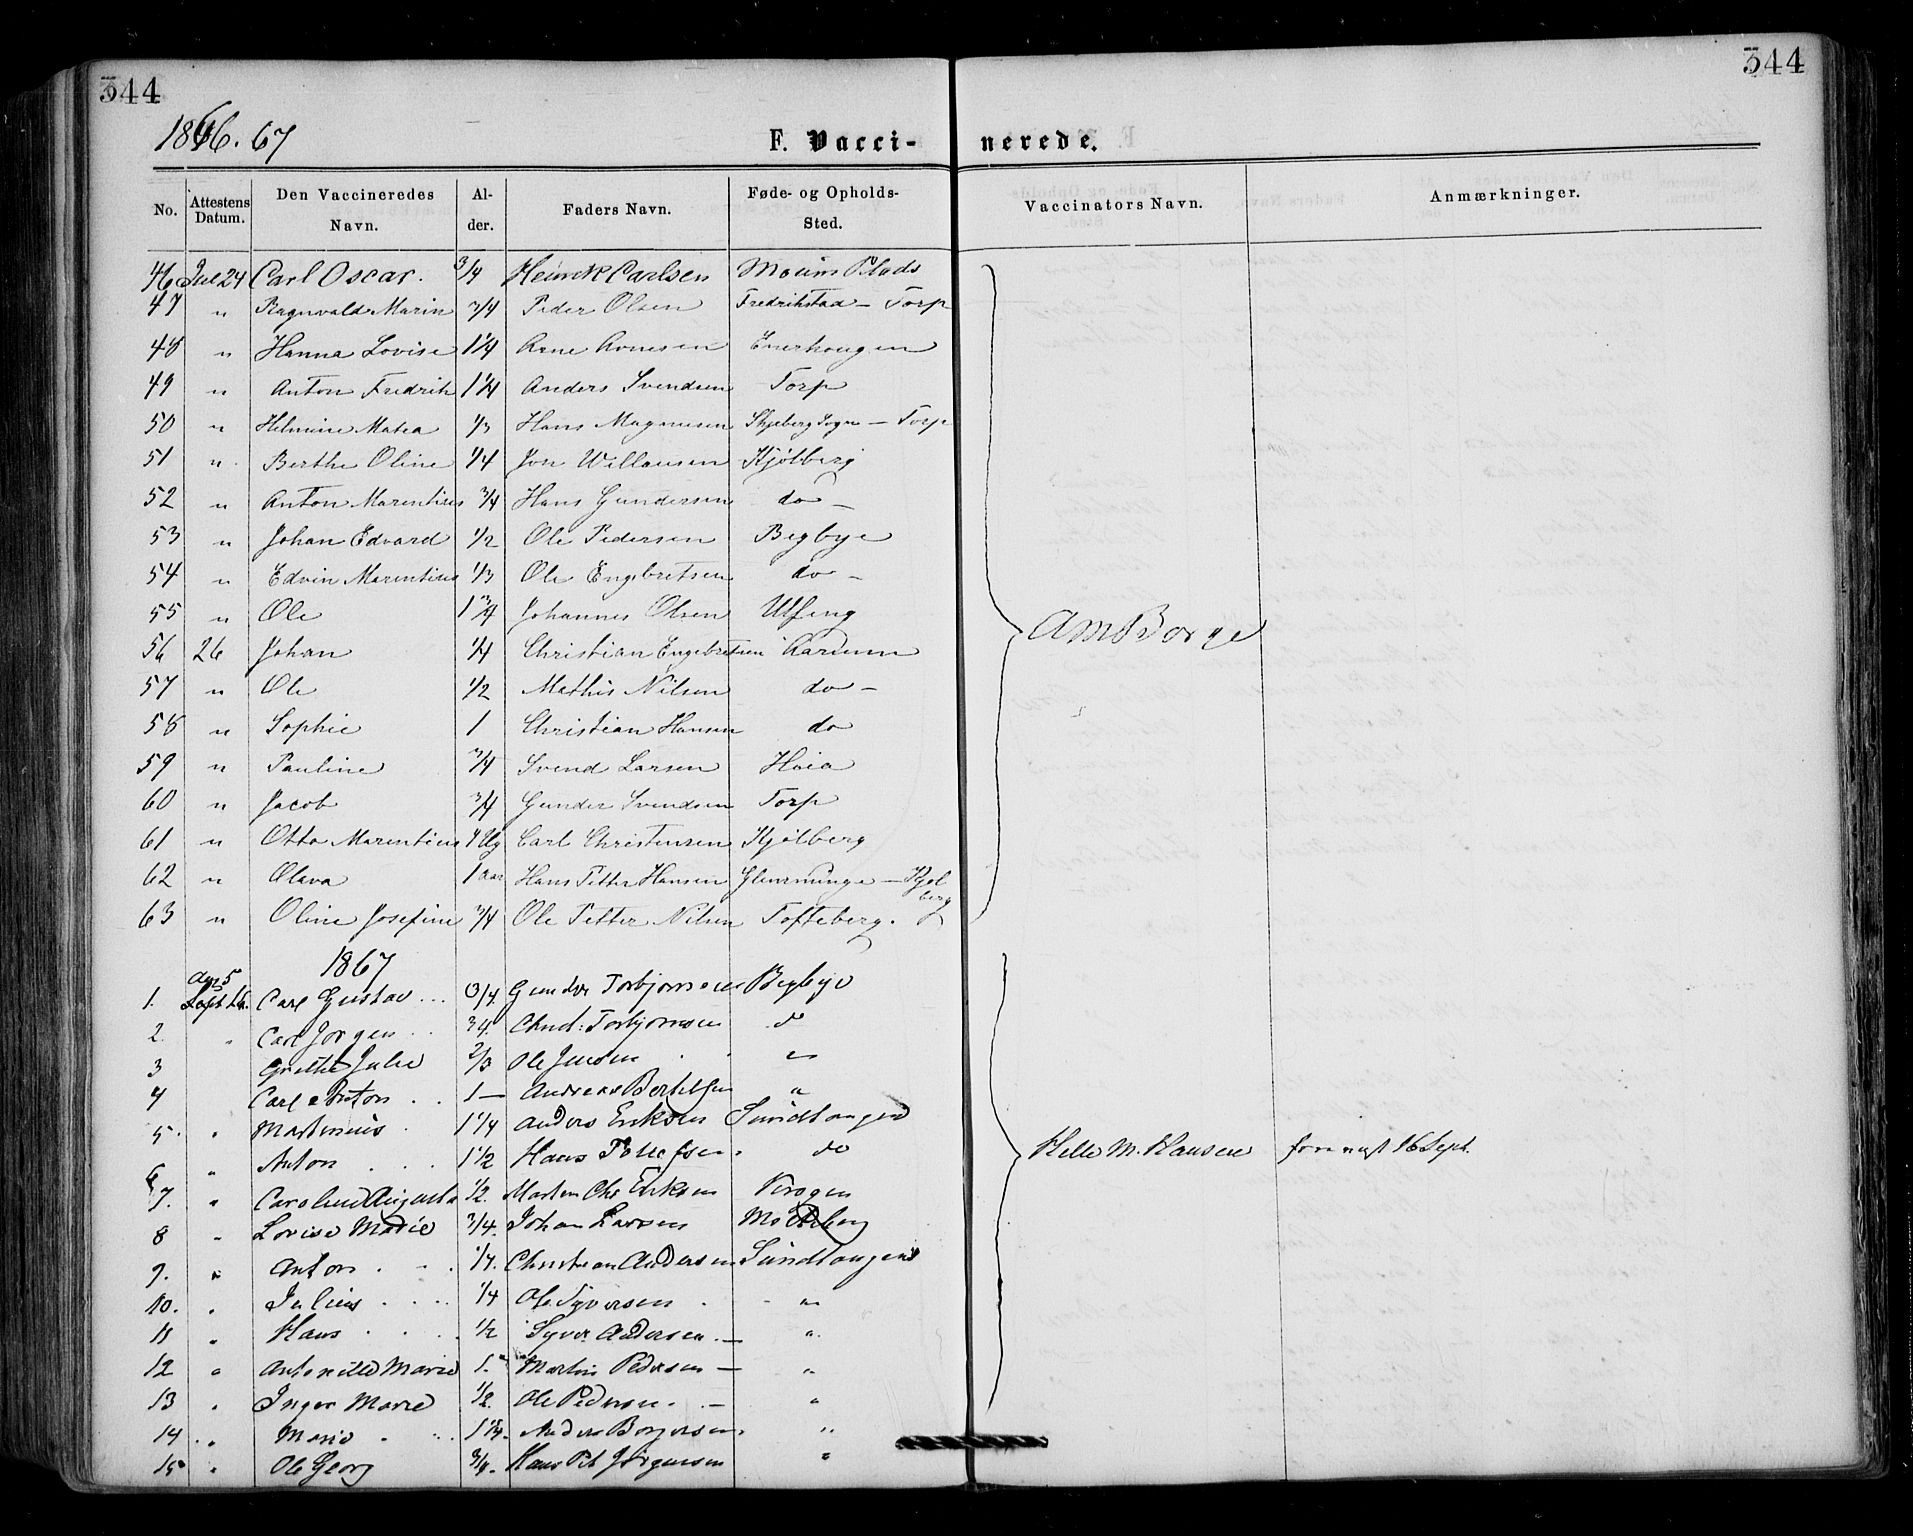 344
344
1866. 67
F. Vacci- nerede.
No. Attestens Datum. Den Vaccineredes Navn. Al- der. Faders Navn. Føde- og Opholds- Sted. Vaccinators Navn. Anmærkninger.
46 Jul 24 Carl Oscar. 3/4 Heinrik Carlsen Moum Plads
47 " Ragnvald Marin 3/4 Peder Olsen Fredrikstad – Torp
48 " Hanna Lovise 1 1/4 Arne Arnesen Enerhougen
49 " Anton Fredrik 1 1/4 Anders Svendsen Torp
50 " Helmine Matea 1/3 Hans Magnusen Skjeberg Sogn – Torp
51 " Berthe Oline 1/4 Jon Willausen Kjølberg
52 " Anton Marentius 3/4 Hans Gundersen do –
53 " Johan Edvard 1/2 Ole Pedersen Begbye
54 " Edvin Marentius 1/3 Ole Engebretsen do –
55 " Ole 1 3/4 Johannes Olsen Ulfeng
A M Borge
56 26 Johan 1/4 Christian Engebretsen Aarum
57 " Ole 1/2 Mathis Nilsen do –
58 " Sophie 1 Christian Hansen do
59 " Pauline 3/4 Svend Larsen Haia
60 " Jacob 3/4 Gunder Svendsen Torp
61 " Otto Marentius 9 Ug Carl Christensen Kjølberg
62 " Olava 1 aar Hans Petter Hansen Glemminge – Kjøl berg
63 " Oline Josefine 3/4 Ole Petter Nilsen Tofteberg.
1867
1. Sept 26. Carl Gustav ... 3/4 Gunder Torbjørnsen Begbye
2. " Carl Jørgen .. 3/4. Chnd: Torbjørnsen do
3 Grethe Julie 2/3 Ole Jensen "
4 Carl Anton .. 1 – Andreas Bertelsen "
5. " Martinius . 1 1/4 Anders Eriksen Sundtangen
6 " Anton ... 1 1/2 Hans Petersen. do
Helle M. Hansen 16 Sept.
7. " Caroline Augusta 1/2. Marten Chr Eriksen
8 " Lovise Marie 3/4. Johan Larsen
9. " Anton ... 1/4. Christian Andersen Sundtangen
10. " Julius .... 1/4 Ole Syversen . "
11 " Hans .... 1/2 Syver Andersen. – "
12 " Antonette Marie 1. Martin Pedersen – "
13 " Inger Marie 1/2 Ole Pedersen. – "
14. " Marie ... 1 1/4. Anders Borgersen. "
15 " Ole Georg 3/4. Hans Pet Jørgensen "